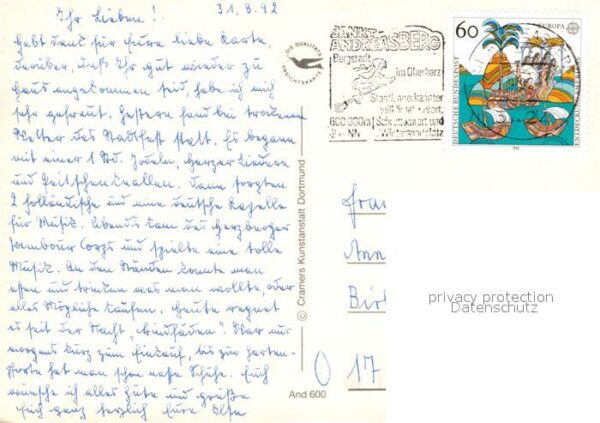 31.8.92
Ihr Lieben!
Habt Dank für Eure liebe Karte,
darüber, daß Ihr gut wieder zu
Haus angekommen seid, habe ich mich
sehr gefreut. Gestern fand bei trockenem
Wetter das Stadtfest statt. Es begann
mit einer 1 Std. Jodeln, Harzer Liedern
und Peitschenknallen. Dann sorgten
2 holländische und eine deutsche Kapelle
für Musik. Abends kam das Herzberger
Tambour Corps und spielte eine tolle
Musik. An den Ständen konnte man
essen und trinken was man wollte, oder
alles Mögliche kaufen. Heute regnet
es seit der Nacht „Bindfäden“. War nur
morgens kurz zum Einkauf, bis zur Garten-
pforte hat man schon nasse Schuhe. Euch
wünsche ich alles Gute und grüße
Euch ganz herzlich Eure Ilse
DIE QUALITÄTS
ANSICHTSKARTE
SANKT
ANDREASBERG
Bergstadt
im Oberharz
600-900m
60
EUROPA CEPT
DEUTSCHE BUNDESPOST
1992
© Cramers Kunstanstalt Dortmund
And 600
Frau
Ann
Bir
O 17
privacy protection
Datenschutz